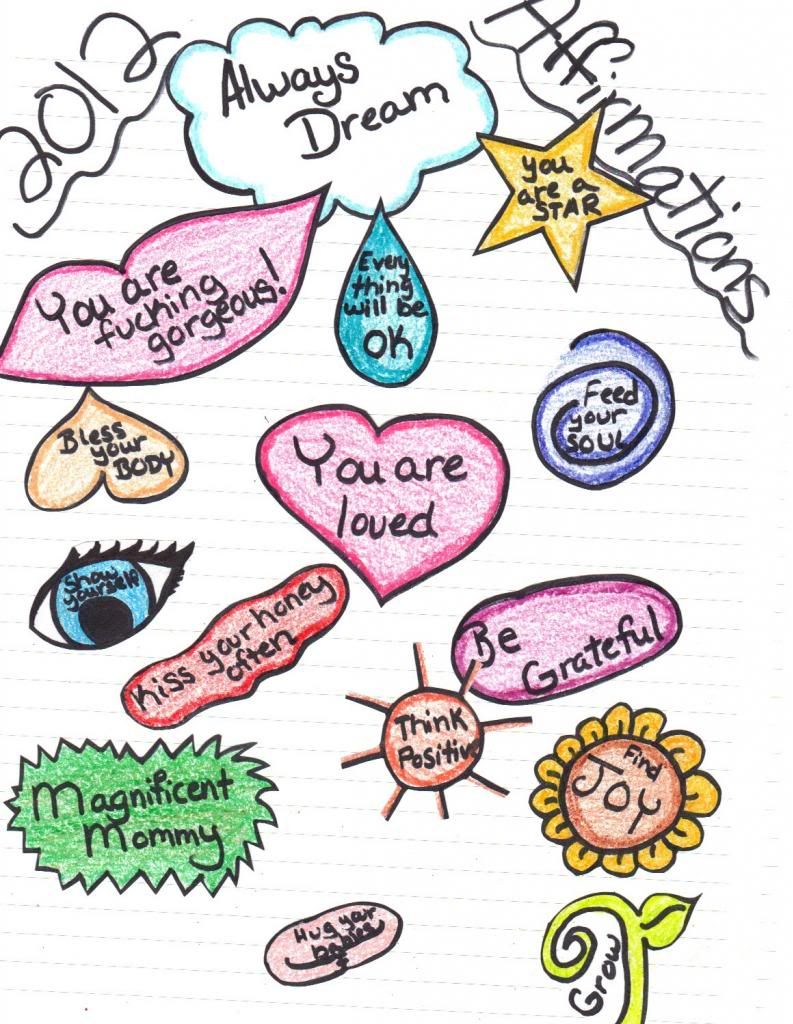 2012
Affirmations
Always
Dream
You
are a
STAR
You are
fucking
gorgeous!
Every
thing
will be
OK
Feed
your
SOUL
Bless
your
BODY
You are
loved
Show
yourself
Kiss your honey
often
Be
Grateful
Think
Positive
Find
JOY
Magnificent
Mommy
Hug your
babies
Grow